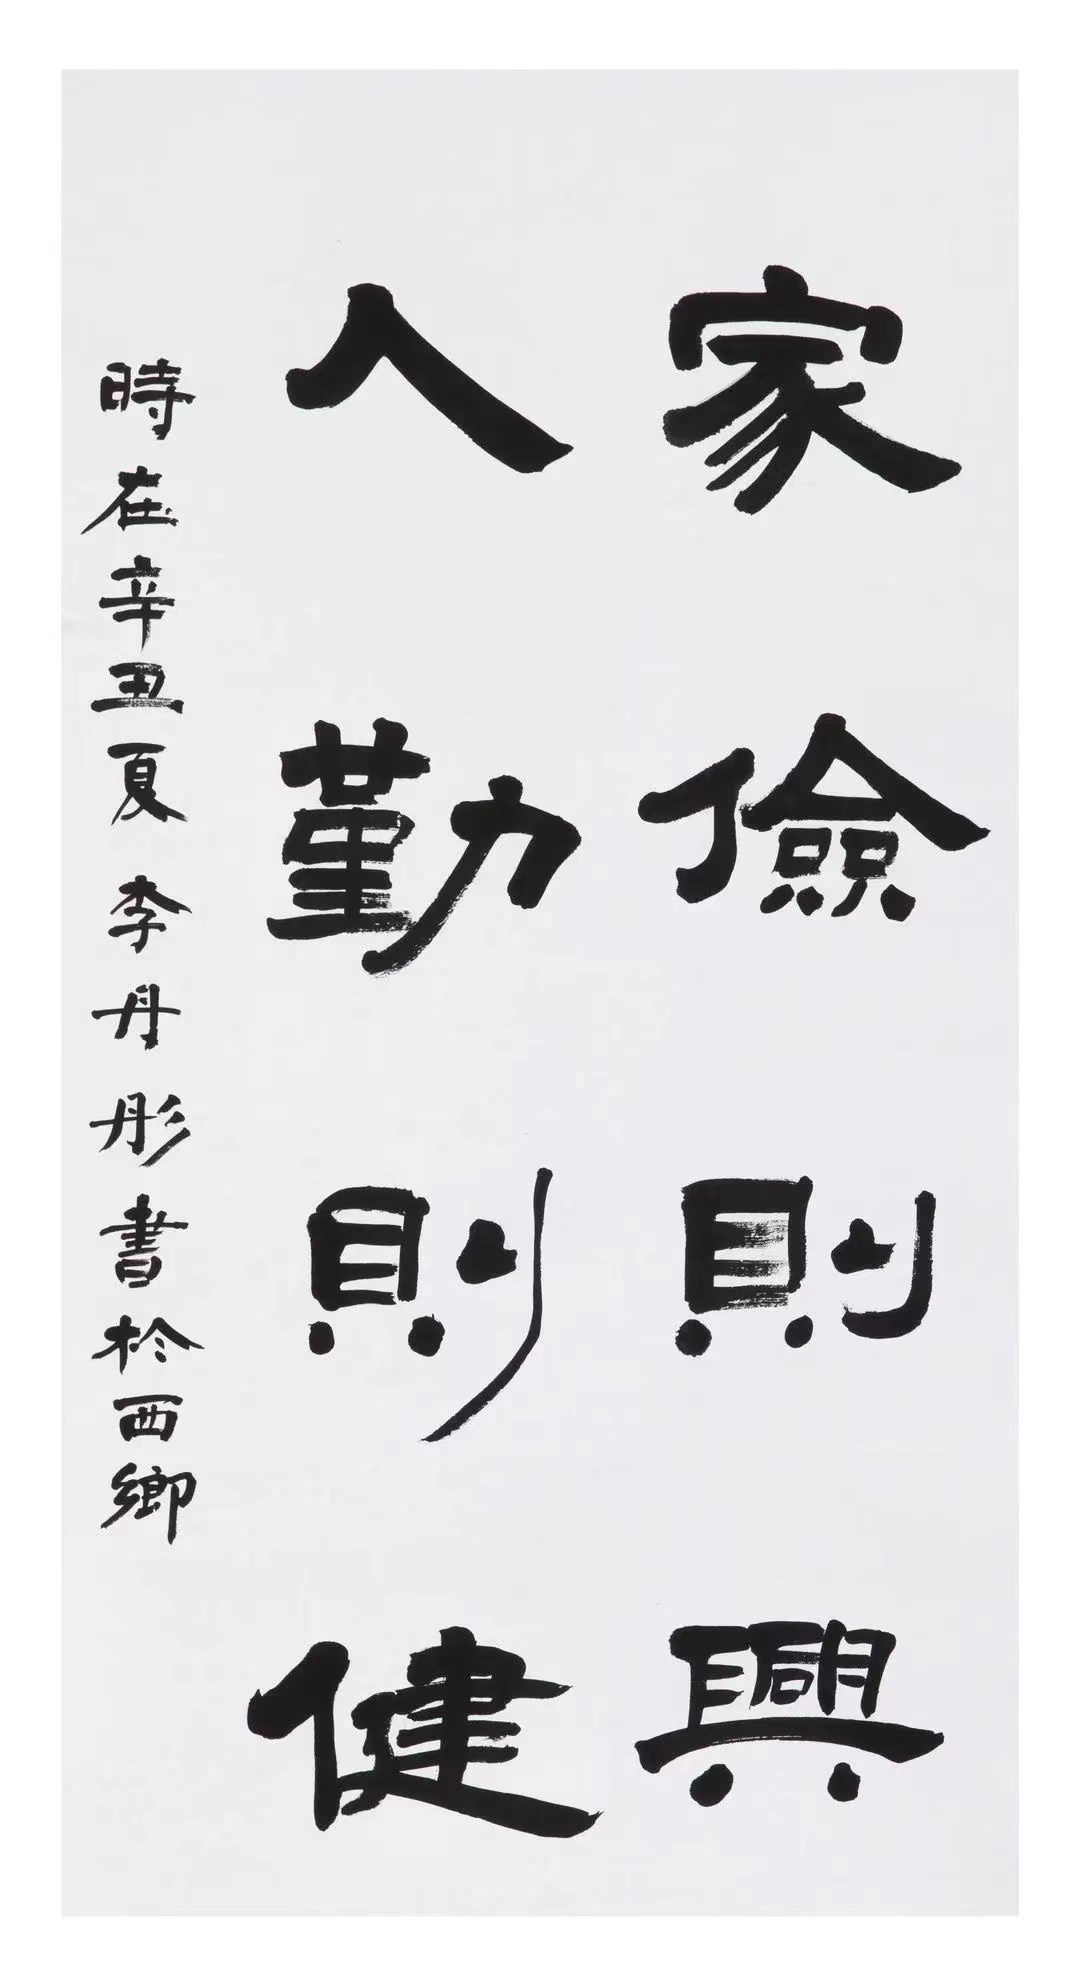 家儉則興
人勤則健
時在辛丑夏李丹彤書於西鄉